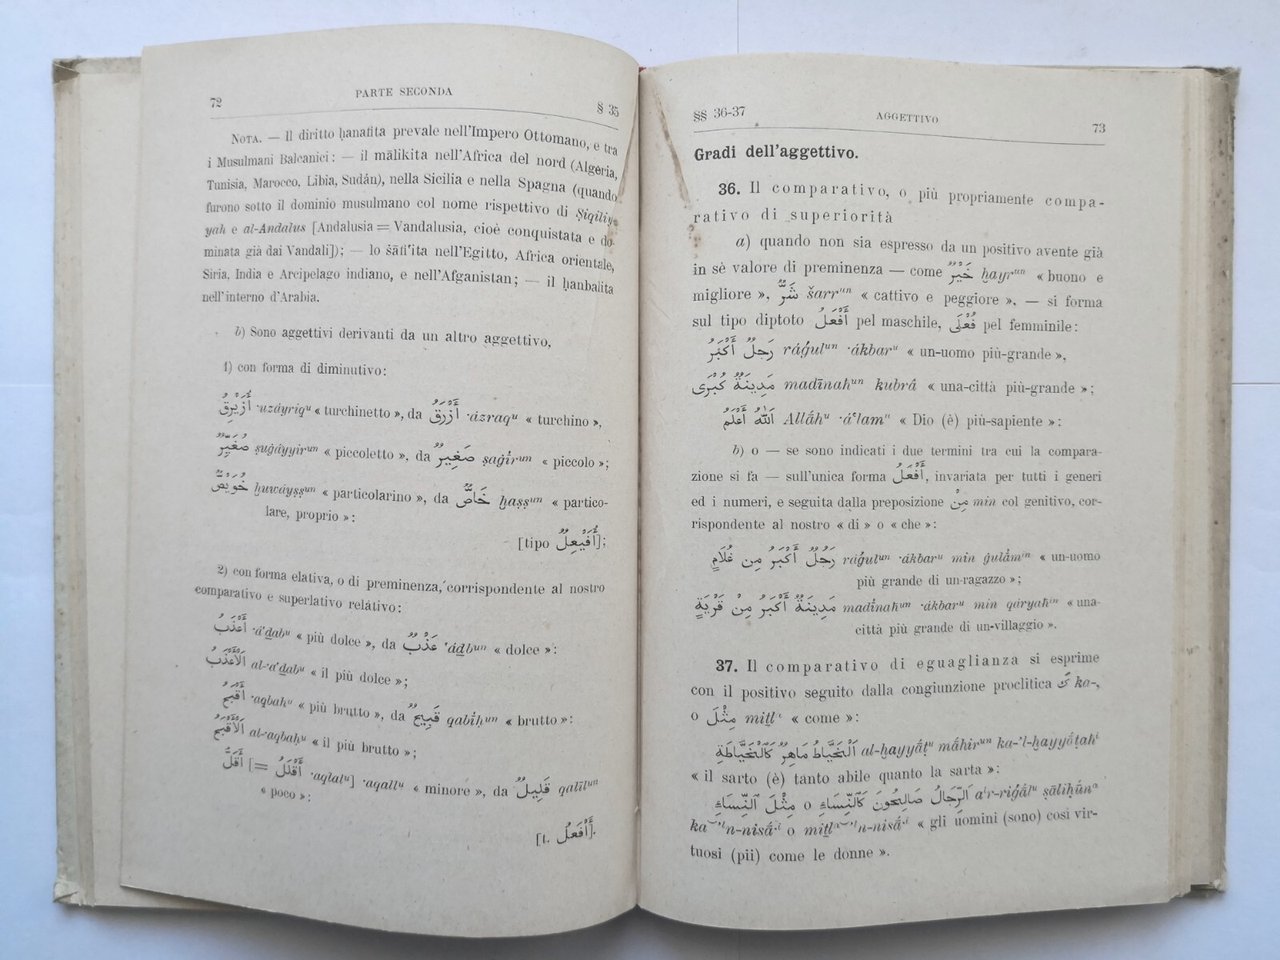 72 PARTE SECONDA § 35
NOTA. — Il diritto ḥanafita prevale nell'Impero Ottomano, e tra
i Musulmani Balcanici: — il mālikita nell'Africa del nord (Algeria,
Tunisia, Marocco, Libia, Sudán), nella Sicilia e nella Spagna (quando
furono sotto il dominio musulmano col nome rispettivo di Ṣiqiliy-
yah e al-Andalus [Andalusia = Vandalusia, cioè conquistata e do-
minata già dai Vandali]); — lo šāfi'ita nell'Egitto, Africa orientale,
Siria, India e Arcipelago indiano, e nell'Afganistan; — il ḥanbalita
nell'interno d'Arabia.
b) Sono aggettivi derivanti da un altro aggettivo,
1) con forma di diminutivo:
أُزَيْرِقُ ·uzáyriqᵘ « turchinetto », da أَزْرَقُ ·ázraqᵘ « turchino »,
صُغَيِّرٌ ṣuġáyyirᵘⁿ « piccoletto », da صَغِيرٌ ṣaġī́rᵘⁿ « piccolo »;
خُوَيْصٌّ ḫuwáyṣṣᵘⁿ « particolarino », da خَاصٌّ ḫaṣṣᵘⁿ « partico-
lare, proprio »:
[tipo أُفَيْعِلُ];
2) con forma elativa, o di preminenza, corrispondente al nostro
comparativo e superlativo relativo:
أَعْذَبُ ·á'ḏabᵘ « più dolce », da عَذْبٌ 'áḏbᵘⁿ « dolce »:
اَلْأَعْذَبُ al-·a'ḏabᵘ « il più dolce »;
أَقْبَحُ ·aqbaḥᵘ « più brutto », da قَبِيحٌ qabī́ḥᵘⁿ « brutto »:
اَلْأَقْبَحُ al-·aqbaḥᵘ « il più brutto »;
أَقَلُّ [= أَقْلَلُ ·aqlalᵘ] ·aqallᵘ « minore », da قَلِيلٌ qalīlᵘⁿ
« poco »:
[t. أَفْعَلُ].
§§ 36-37 AGGETTIVO 73
Gradi dell'aggettivo.
36. Il comparativo, o più propriamente compa-
rativo di superiorità
a) quando non sia espresso da un positivo avente già
in sè valore di preminenza — come خَيْرٌ ḫayrᵘⁿ « buono e
migliore », شَرٌّ šarrᵘⁿ « cattivo e peggiore », — si forma
sul tipo diptoto أَفْعَلُ pel maschile, فُعْلَى pel femminile:
رَجُلٌ أَكْبَرُ ráǵulᵘⁿ ·ákbarᵘ « un-uomo più-grande »,
مَدِينَةٌ كُبْرَى madīnahᵘⁿ kubrá « una-città più-grande »;
اَللّٰهُ أَعْلَمُ Allā́hᵘ ·á'lamᵘ « Dio (è) più-sapiente »:
b) o — se sono indicati i due termini tra cui la compara-
zione si fa — sull'unica forma أَفْعَلُ, invariata per tutti i generi
ed i numeri, e seguita dalla preposizione مِنْ min col genitivo, cor-
rispondente al nostro « di » o « che »:
رَجُلٌ أَكْبَرُ مِن غُلَامٍ ráǵulᵘⁿ ·ákbarᵘ min ġulāmⁱⁿ « un-uomo
più grande di un-ragazzo »;
مَدِينَةٌ أَكْبَرُ مِنْ قَرْيَةٍ madī́nahᵘⁿ ·ákbarᵘ min qáryahⁱⁿ « una-
città più grande di un-villaggio ».
37. Il comparativo di eguaglianza si esprime
con il positivo seguito dalla congiunzione proclitica كَ ka-,
o مِثْلَ miṯl « come »:
اَلْخَيَّاطُ مَاهِرٌ كَالْخَيَّاطَةِ al-ḫayyā́ṭᵘ mā́hirᵘⁿ ka-'l-ḫayyā́ṭahⁱ
« il sarto (è) tanto abile quanto la sarta »:
اَلرِّجَالُ صَالِحُونَ كَالنِّسَاءِ o مِثْلَ النِّسَاءِ aʳr-riǵā́lᵘ ṣāliḥū́nᵃ
ka-'ⁿn-nisā́·ⁱ o miṯl-'ⁿn-nisā́·ⁱ « gli uomini (sono) così vir-
tuosi (pii) come le donne ».